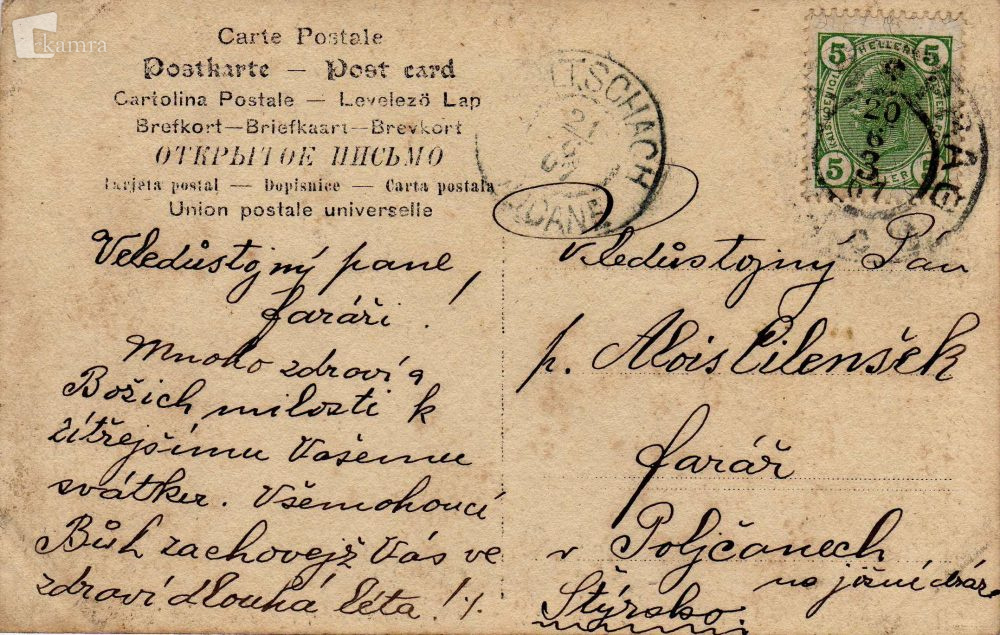 kamra
Carte Postale
Postkarte — Post card
Cartolina Postale — Levelező Lap
Brefkort—Briefkaart—Brevkort
ОТКРЫТОЕ ПИСЬМО
Tarjeta postal — Dopisnice — Carta postala
Union postale universelle
LTSCHACH
21
5 HELLER 5
5 5
20
6
Veledůstojný pane,
faráři!
Mnoho zdraví a
Božich milosti k
zítřejšímu Vašemu
svátku. Všemohoucí
Bůh zachovejž Vás ve
zdraví dlouhá léta!
Veledůstojny Pán
p. Alois Cilenšek
farář
v Poljčanech
na jižní dráze
Štýrsko.